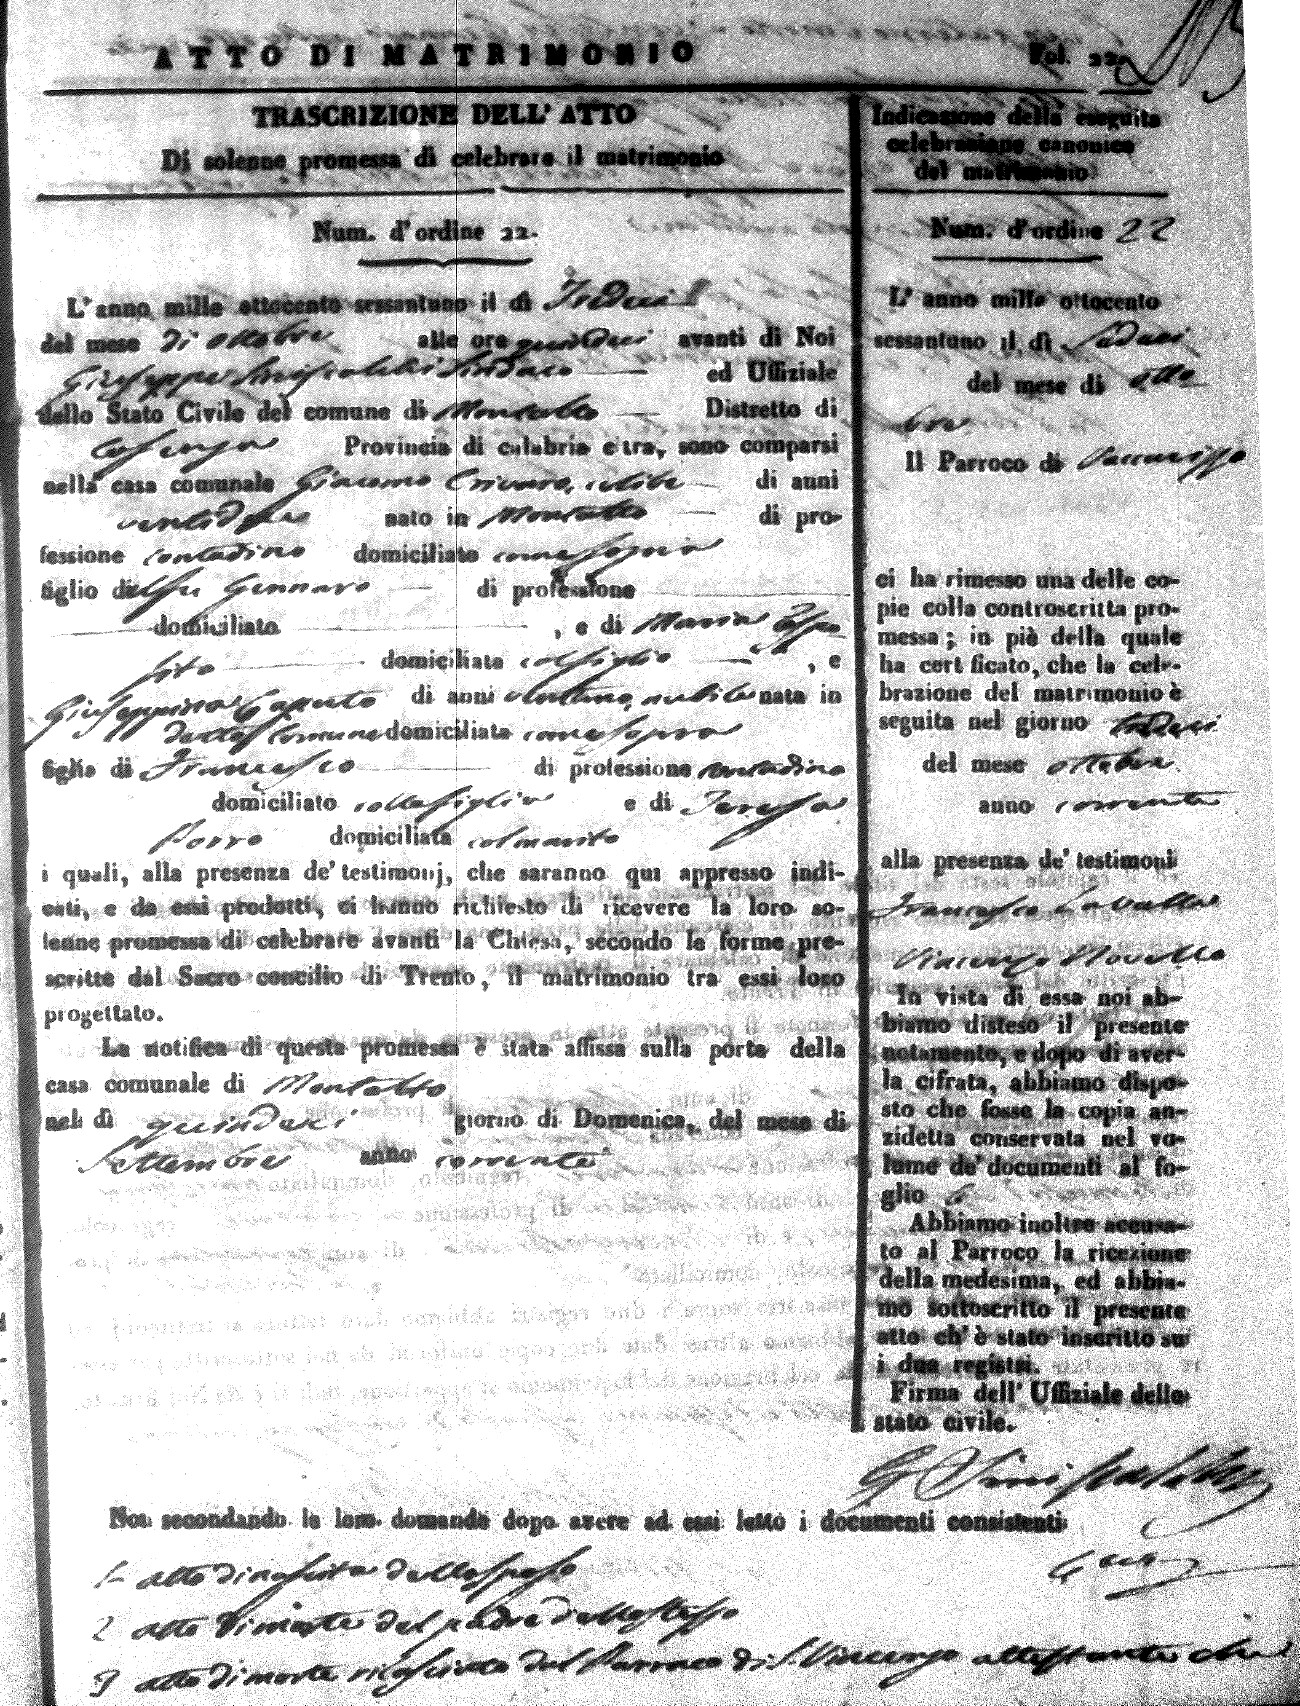 ATTO DI MATRIMONIO
Vol. 22
TRASCRIZIONE DELL' ATTO
Di solenne promessa di celebrare il matrimonio
Num. d'ordine 22.
L'anno mille ottocento sessantuno il dì Tredici
del mese di ottobre alle ore quindici avanti di Noi
Giuseppe Sindaco ed Uffiziale
dello Stato Civile del comune di Montalto Distretto di
Cosenza Provincia di calabria citra, sono comparsi
nella casa comunale Giacomo celibe di anni
nato in Montalto di pro-
fessione contadino domiciliato come sopra
figlio del fu Gennaro di professione
domiciliato , e di Maria Espo
sito domiciliata col figlio , e
Giuseppina Caputo di anni ventuno, nubile nata in
detto Comune domiciliata come sopra
figlia di Francesco di professione contadino
domiciliato colla figlia e di Teresa
Porro domiciliata col marito
i quali, alla presenza de' testimonj, che saranno qui appresso indi-
cati, e da essi prodotti, ci hanno richiesto di ricevere la loro so-
lenne promessa di celebrare avanti la Chiesa, secondo le forme pre-
scritte dal Sacro concilio di Trento, il matrimonio tra essi loro
progettato.
La notifica di questa promessa è stata affissa sulla porta della
casa comunale di Montalto
nel dì quindeci giorno di Domenica, del mese di
Settembre anno corrente
Indicazione della eseguita
celebrazione canonica
del matrimonio
Num. d'ordine 22
L' anno mille ottocento
sessantuno il dì Sedeci
del mese di otto
bre
Il Parroco di Vaccarizzo
ci ha rimesso una delle co-
pie colla controscritta pro-
messa; in piè della quale
ha cert ficato, che la cele-
brazione del matrimonio è
seguita nel giorno
del mese ottobre
anno corrente
alla presenza de' testimoni
Francesco Cavallo
Vincenzo Novello
In vista di essa noi ab-
biamo disteso il presente
notamento, e dopo di aver-
la cifrata, abbiamo dispo-
sto che fosse la copia an-
zidetta conservata nel vo-
lume de' documenti al fo-
glio
Abbiamo inoltre accusa-
to al Parroco la ricezione
della medesima, ed abbia-
mo sottoscritto il presente
atto ch' è stato inscritto su
i due registri.
Firma dell' Uffiziale dello
stato civile.
Noi secondando la loro domanda dopo avere ad essi letto i documenti consistenti
1 atto di nascita dello sposo
2 atto di morte del padre dello stesso
3 atto di morte rilasciato dal Parroco di S. Vincenzo attestante che